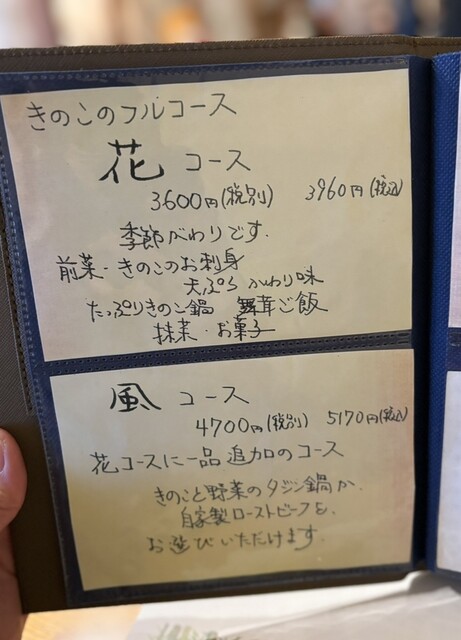 きのこのフルコース
花 コース
3600円(税別) 3960円(税込)
季節がわりです.
前菜・きのこのお刺身
天ぷら かわり味
たっぷりきのこ鍋 舞茸ご飯
抹茶・お菓子
風 コース
4700円(税別) 5170円(税込)
花コースに一品追加のコース
きのこと野菜のタジン鍋か.
自家製ローストビーフを.
お選びいただけます.